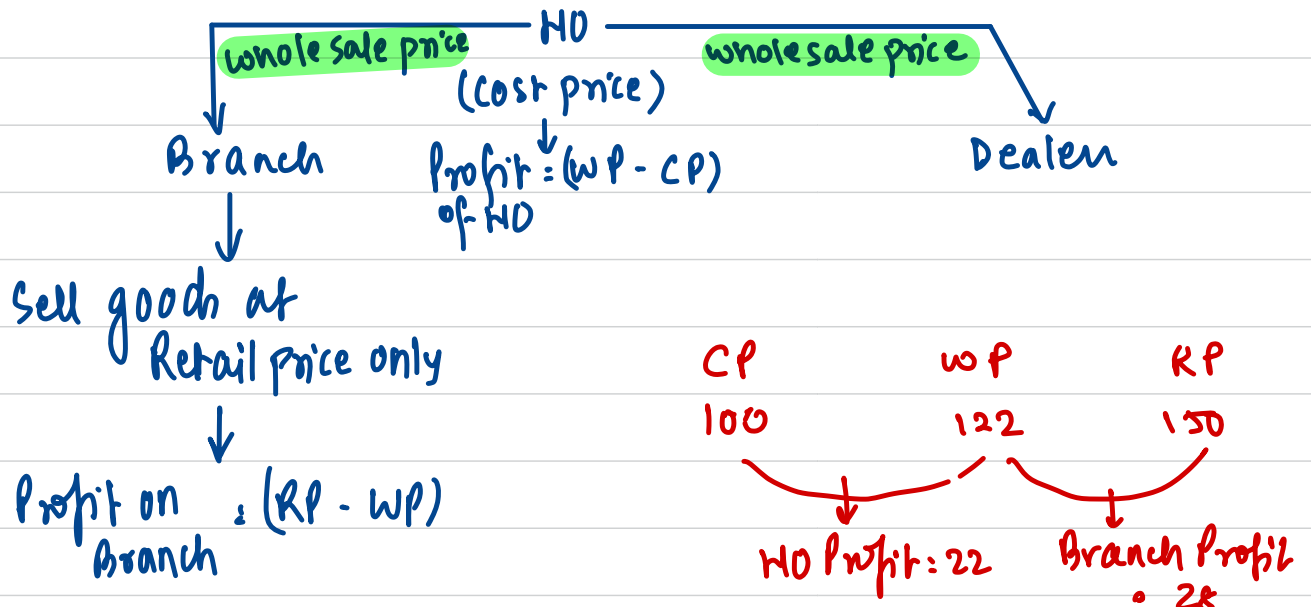 HO
wholesale price
wholesale price
(cost price)
Branch
Profit = (WP - CP)
of HO
Dealer
Sell goods at
Retail price only
Profit on : (RP - WP)
Branch
CP WP RP
100 122 150
HO Profit = 22
Branch Profit
= 28